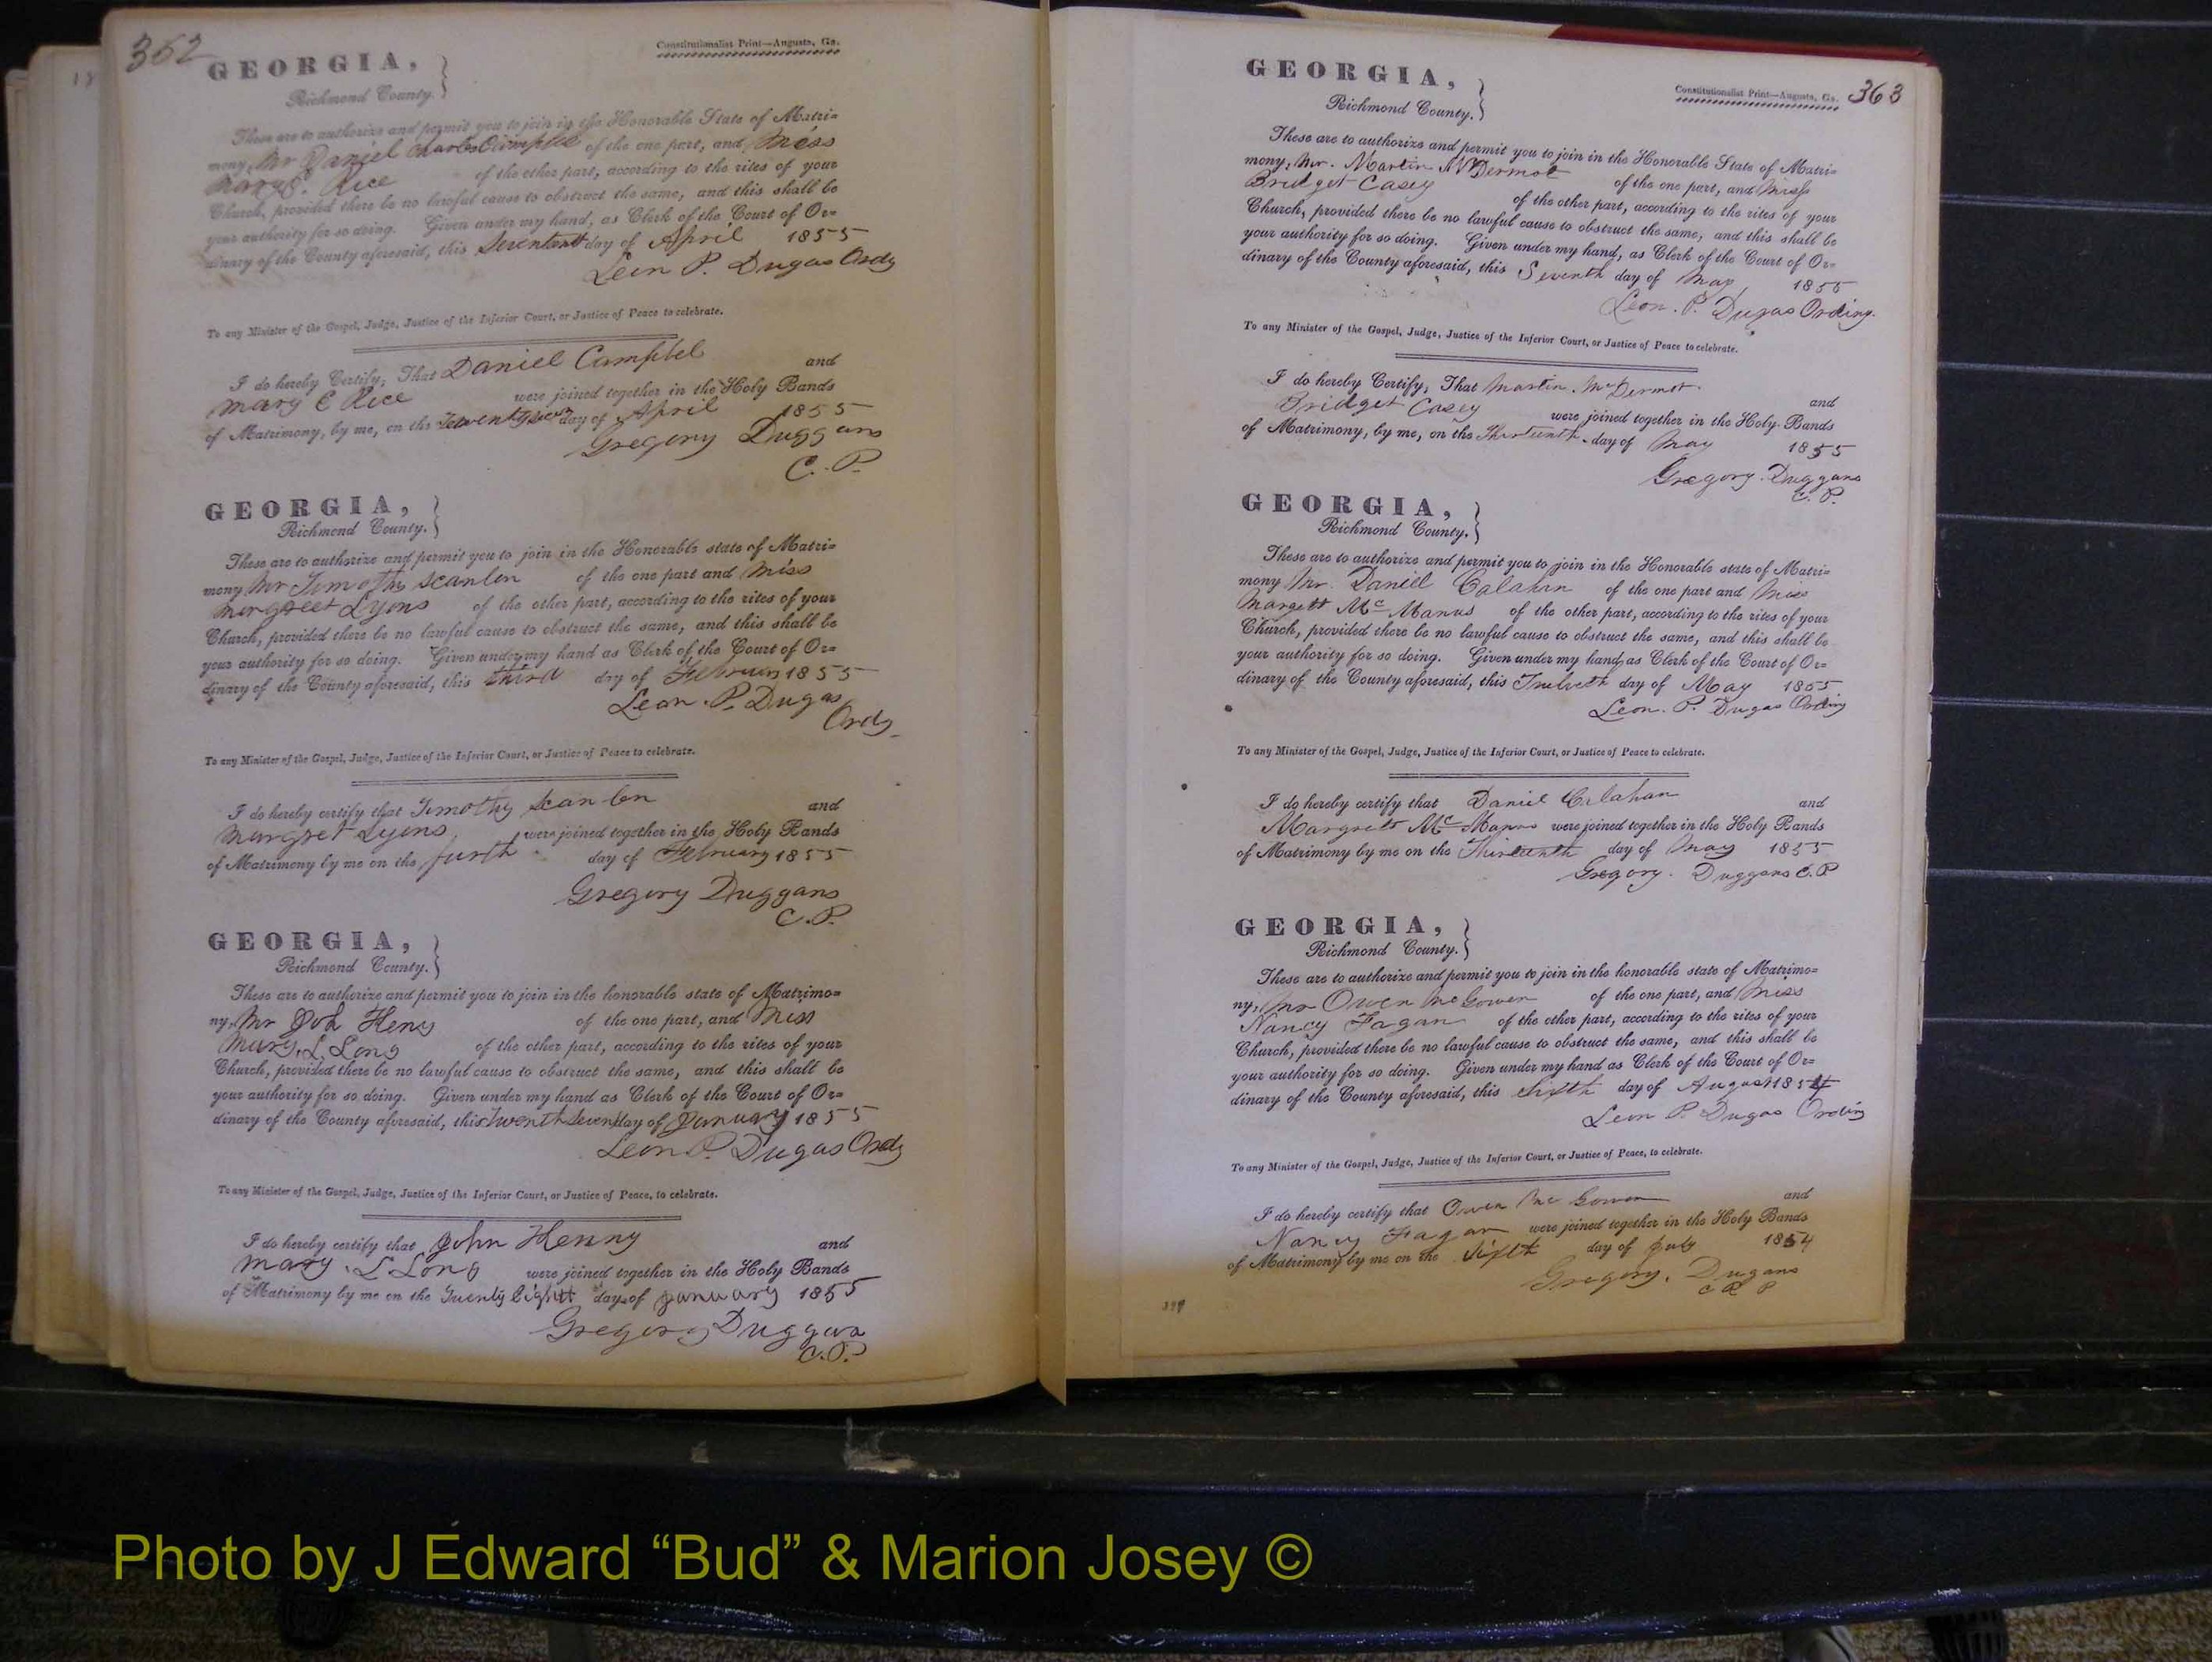 362
Constitutionalist Print—Augusta, Ga.
GEORGIA,
Richmond County.
These are to authorize and permit you to join in the Honorable State of Matri=
mony, Mr Daniel Charles Campbel of the one part, and Miss
Mary E. Rice of the other part, according to the rites of your
Church, provided there be no lawful cause to obstruct the same, and this shall be
your authority for so doing. Given under my hand, as Clerk of the Court of Or=
dinary of the County aforesaid, this day of April 1855
Leon P. Dugas Ordy
To any Minister of the Gospel, Judge, Justice of the Inferior Court, or Justice of Peace to celebrate.
I do hereby Certify, That Daniel Campbel and
Mary E Rice were joined together in the Holy Bands
of Matrimony, by me, on the day of April 1855
Gregory Duggans
C. P.
GEORGIA,
Richmond County.
These are to authorize and permit you to join in the Honorable state of Matri=
mony Mr Timothy Scanlon of the one part and Miss
Margreet Lyons of the other part, according to the rites of your
Church, provided there be no lawful cause to obstruct the same, and this shall be
your authority for so doing. Given under my hand as Clerk of the Court of Or=
dinary of the County aforesaid, this third day of 1855
Leon. P. Dugas
Ordy
To any Minister of the Gospel, Judge, Justice of the Inferior Court, or Justice of Peace to celebrate.
I do hereby certify that Timothy Scanlon and
Margret Lyons, were joined together in the Holy Bands
of Matrimony by me on the furth day of February 1855
Gregory Duggans
C. P.
GEORGIA,
Richmond County.
These are to authorize and permit you to join in the honorable state of Matrimo=
ny, Mr Heny of the one part, and Miss
Mary, L. Long of the other part, according to the rites of your
Church, provided there be no lawful cause to obstruct the same, and this shall be
your authority for so doing. Given under my hand as Clerk of the Court of Or=
dinary of the County aforesaid, this day of January 1855
Leon P. Dugas Ordy
To any Minister of the Gospel, Judge, Justice of the Inferior Court, or Justice of Peace, to celebrate.
I do hereby certify that John Henny and
Mary. L Long were joined together in the Holy Bands
of Matrimony by me on the Twenty Eight day of January 1855
Gregory Duggan
C. P.
363
Constitutionalist Print—Augusta, Ga.
GEORGIA,
Richmond County.
These are to authorize and permit you to join in the Honorable State of Matri=
mony, Mr. Martin McDermot of the one part, and Miss
Bridget Casey of the other part, according to the rites of your
Church, provided there be no lawful cause to obstruct the same, and this shall be
your authority for so doing. Given under my hand, as Clerk of the Court of Or=
dinary of the County aforesaid, this Seventh day of May 1855
Leon. P. Dugas Ording.
To any Minister of the Gospel, Judge, Justice of the Inferior Court, or Justice of Peace to celebrate.
I do hereby Certify, That Martin. McDermot. and
Bridget Casey were joined together in the Holy Bands
of Matrimony, by me, on the Thirteenth day of May 1855
Gregory. Duggans
C. P.
GEORGIA,
Richmond County.
These are to authorize and permit you to join in the Honorable state of Matri=
mony Mr. Daniel Calahan of the one part and Miss
Margett Mc Manus of the other part, according to the rites of your
Church, provided there be no lawful cause to obstruct the same, and this shall be
your authority for so doing. Given under my hand, as Clerk of the Court of Or=
dinary of the County aforesaid, this Twelveth day of May 1855
Leon. P. Dugas Ording
To any Minister of the Gospel, Judge, Justice of the Inferior Court, or Justice of Peace to celebrate.
I do hereby certify that Daniel Calahan and
Margrett Mc Manus were joined together in the Holy Bands
of Matrimony by me on the Thirteenth day of May 1855
Gregory. Duggans C. P
GEORGIA,
Richmond County.
These are to authorize and permit you to join in the honorable state of Matrimo=
ny, Mr Owen McGowen of the one part, and Miss
Nancy Fagan of the other part, according to the rites of your
Church, provided there be no lawful cause to obstruct the same, and this shall be
your authority for so doing. Given under my hand as Clerk of the Court of Or=
dinary of the County aforesaid, this Sixth day of August 1854
Leon P. Dugas Ording
To any Minister of the Gospel, Judge, Justice of the Inferior Court, or Justice of Peace, to celebrate.
I do hereby certify that Owen Mc Gowen and
Nancy Fagan were joined together in the Holy Bands
of Matrimony by me on the Sixth day of July 1854
Gregory. Dugans
C R P
Photo by J Edward “Bud” & Marion Josey ©